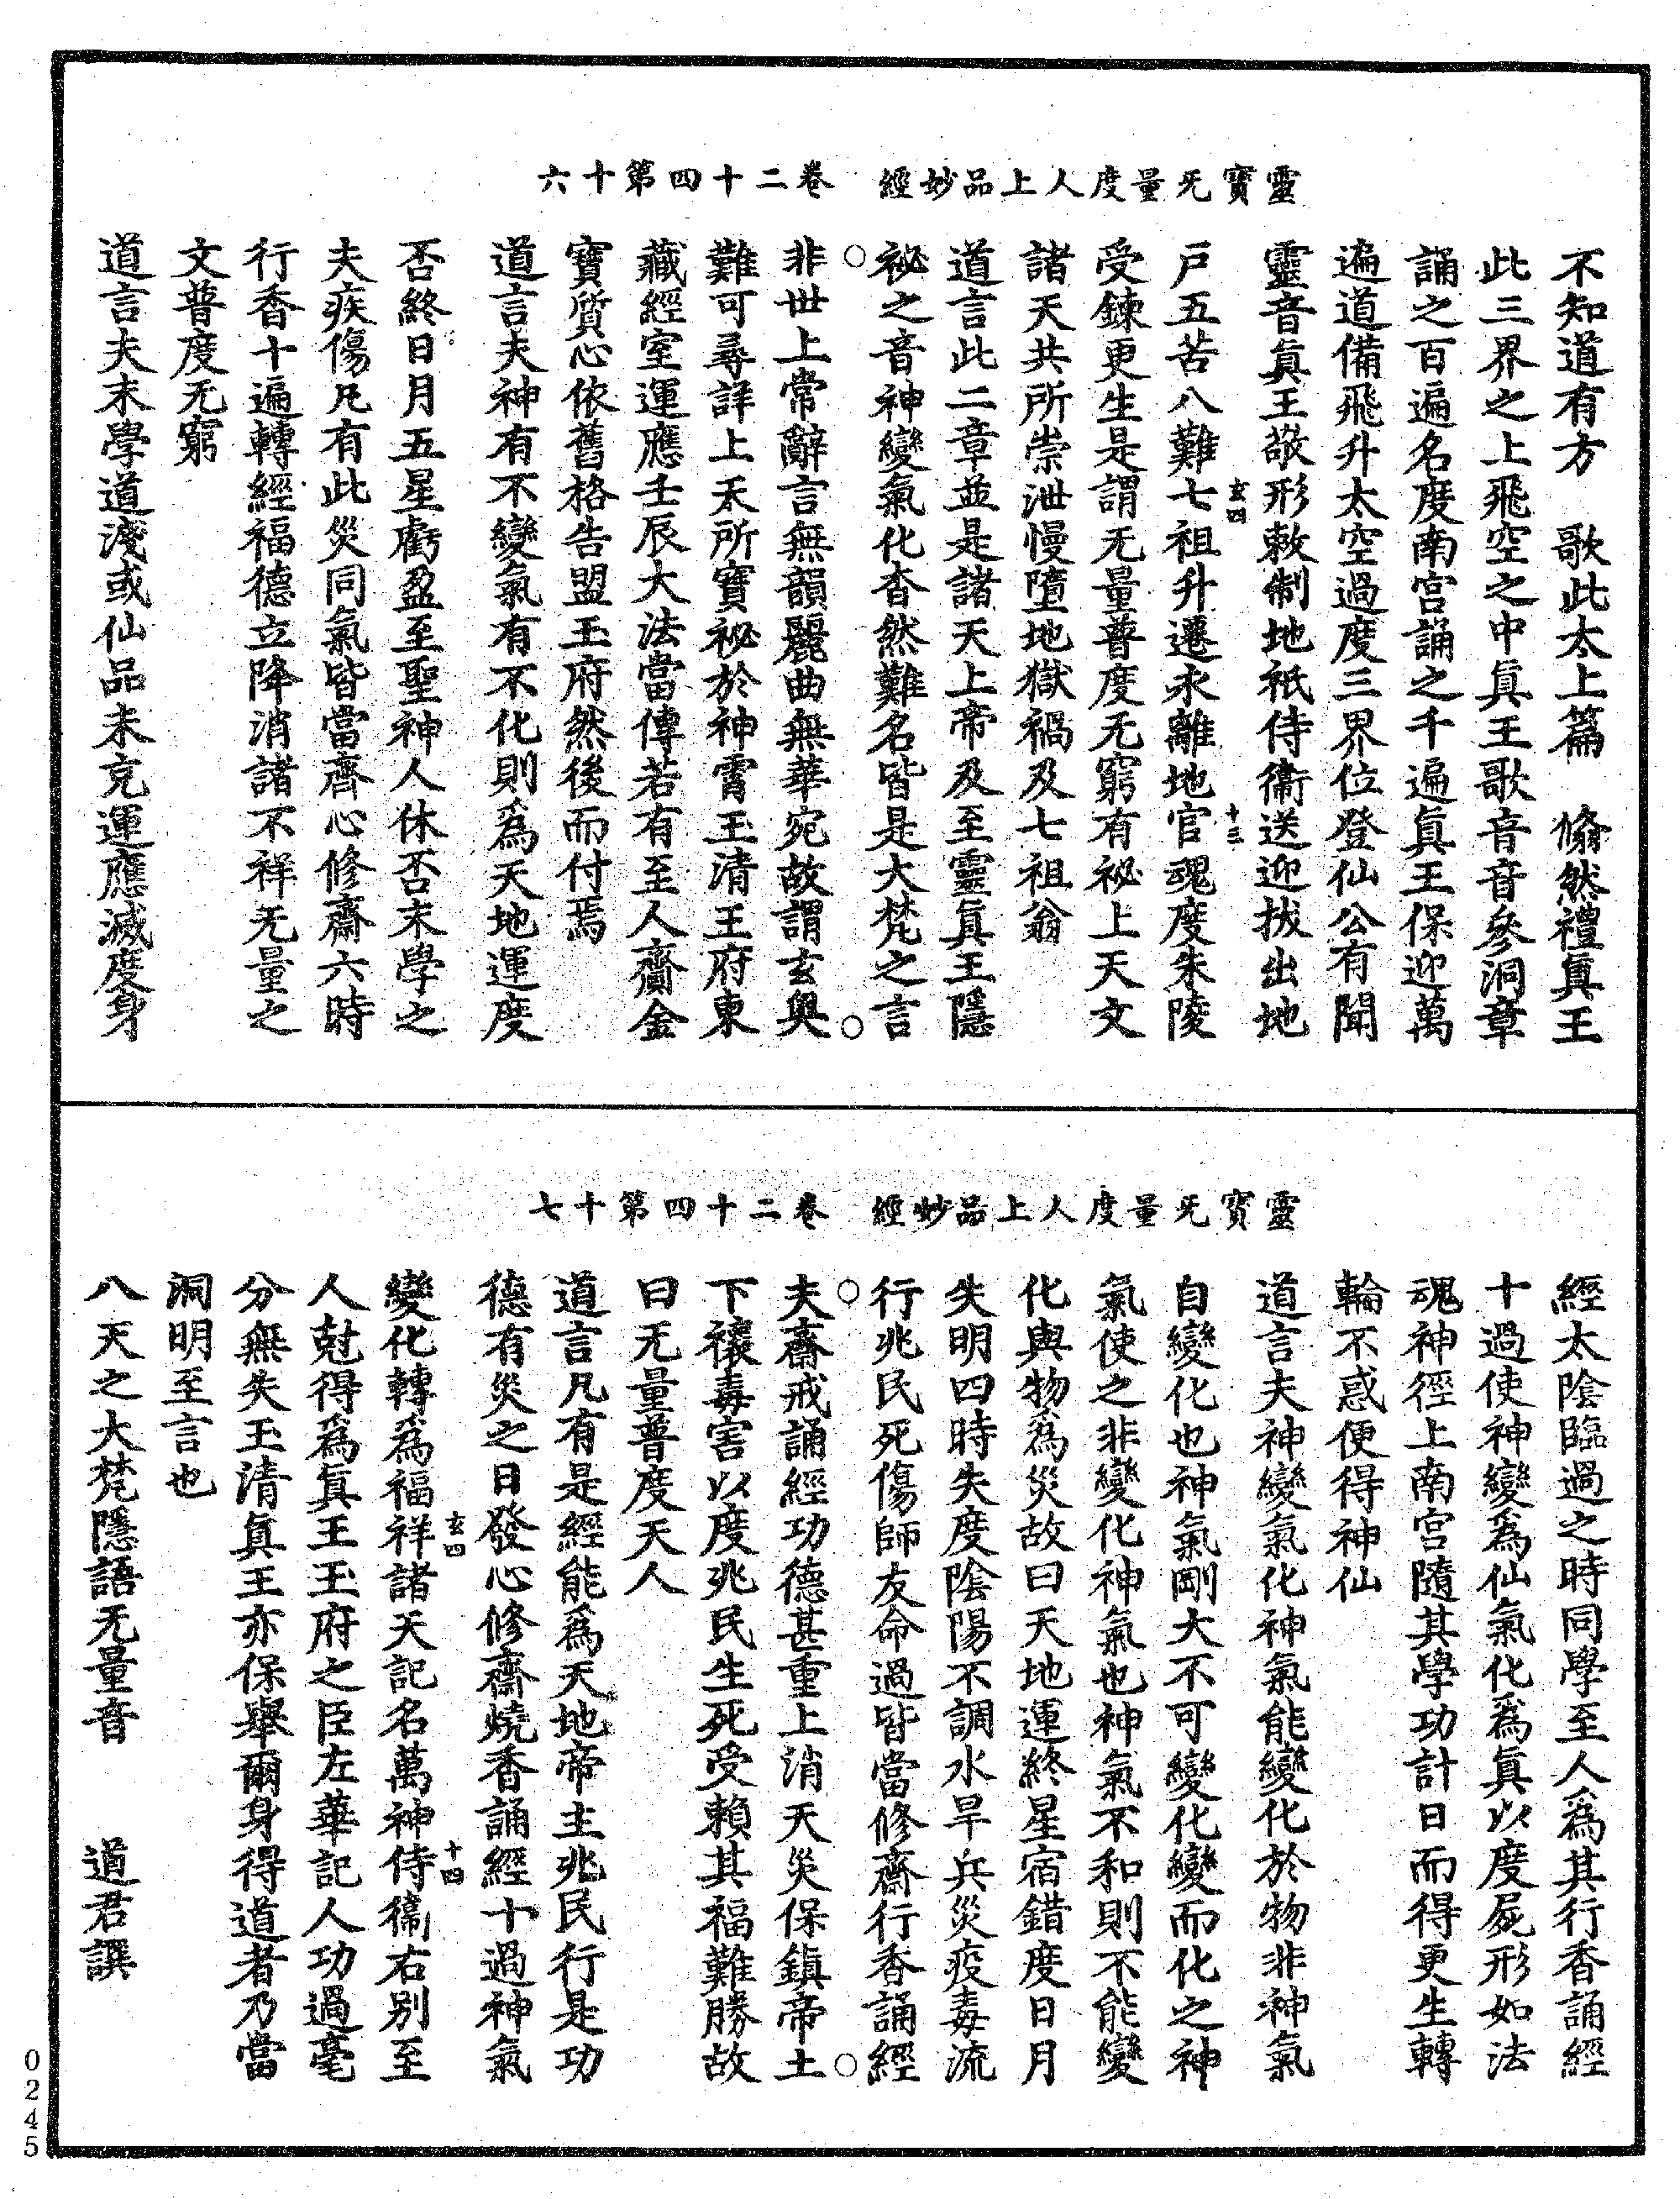 靈寶无量度人上品妙經　卷二十四第十六
不知道有方　歌此太上篇　翛然禮真王
此三界之上飛空之中真王歌音音參洞章
誦之百遍名度南宮誦之千遍真王保迎萬
遍道備飛升太空過度三界位登仙公有聞
靈音真王敬形敕制地祇侍衞送迎拔出地
戶五苦八難七祖升遷永離地官魂度朱陵
玄四　十三
受鍊更生是謂无量普度无窮有祕上天文
諸天共所崇泄慢墮地獄禍及七祖翁
道言此二章並是諸天上帝及至靈真王隱
祕之音神變氣化杳然難名皆是大梵之言
非世上常辭言無韻麗曲無華宛故謂玄奥
難可尋詳上天所寶祕於神霄玉清王府東
藏經室運應壬辰大法當傳若有至人齎金
寶質心依舊格告盟玉府然後而付焉
道言夫神有不變氣有不化則爲天地運度
否終日月五星虧盈至聖神人休否末學之
夫疾傷凡有此災同氣皆當齊心修齋六時
行香十遍轉經福德立降消諸不祥无量之
文普度无窮
道言夫末學道淺或仙品未充運應滅度身
靈寶无量度人上品妙經　卷二十四第十七
經太陰臨過之時同學至人爲其行香誦經
十過使神變爲仙氣化爲真以度屍形如法
魂神徑上南宮隨其學功計日而得更生轉
輪不惑便得神仙
道言夫神變氣化神氣能變化於物非神氣
自變化也神氣剛大不可變化變而化之神
氣使之非變化神氣也神氣不和則不能變
化與物爲災故曰天地運終星宿錯度日月
失明四時失度陰陽不調水旱兵災疫毒流
行兆民死傷師友命過皆當修齋行香誦經
夫齋戒誦經功德甚重上消天災保鎮帝土
下禳毒害以度兆民生死受賴其福難勝故
曰无量普度天人
道言凡有是經能爲天地帝主兆民行是功
德有災之日發心修齋燒香誦經十過神氣
變化轉爲福祥諸天記名萬神侍衞右别至
玄四　十四
人尅得爲真王玉府之臣左華記人功過毫
分無失玉清真王亦保舉爾身得道者乃當
洞明至言也
八天之大梵隱語无量音　　道君譔
0245